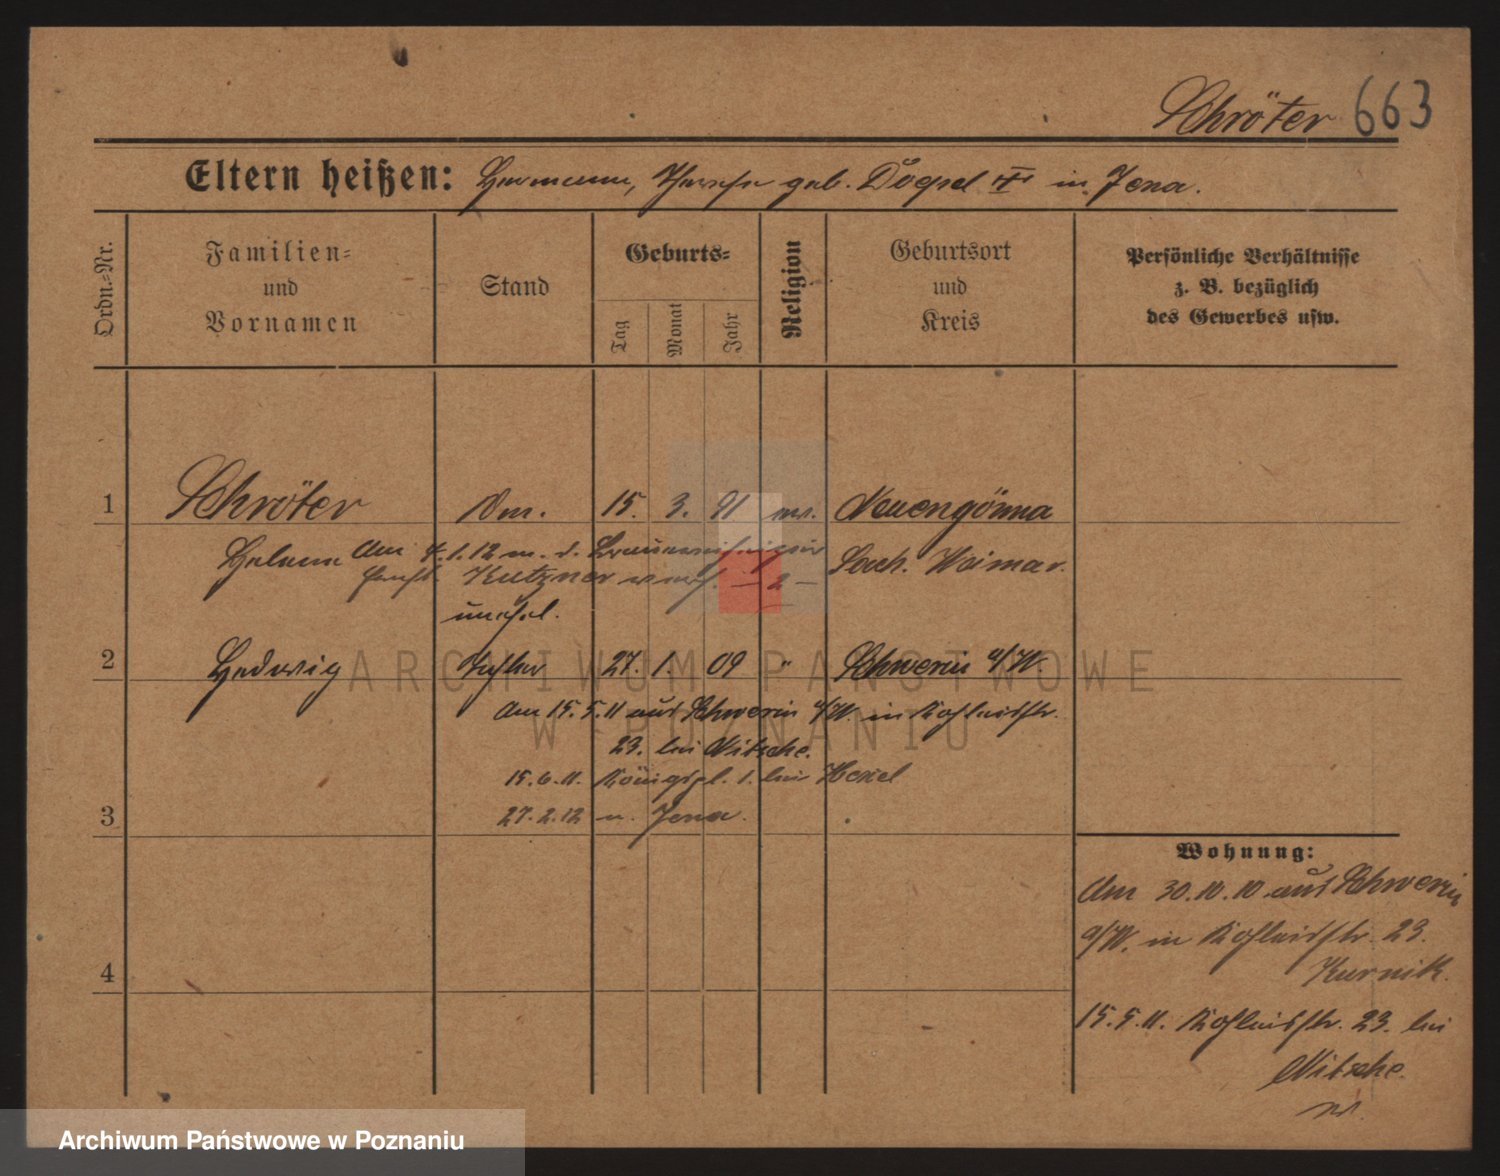 Schröter 663
Eltern heißen: Hermann, geb. Döpel in Jena.
Ordn.-Nr.
Familien-
und
Vornamen
Stand
Geburts-
Tag
Monat
Jahr
Religion
Geburtsort
und
Kreis
Persönliche Verhältnisse
z. B. bezüglich
des Gewerbes usw.
1 Schröter 15. 3. 91 ev. Neuengönna
Helene Am 4.1.12 m. d. Sach. Weimar.
Kutzner
unehel.
2 Hedwig Tochter 27. 1. 09 " Schwerin a/W.
Am 15.5.11 aus Schwerin a/W. in Kohleisstr.
23. bei Nitsche.
15.6.11. Königspl. 1. bei
27.2.12 n. Jena.
3
Wohnung:
Am 30.10.10 aus Schwerin
a/W. in Kohleisstr. 23.
Kurnik.
4
15.5.11. Kohleisstr. 23. bei
Nitsche.
ARCHIWUM PAŃSTWOWE
W POZNANIU
Archiwum Państwowe w Poznaniu